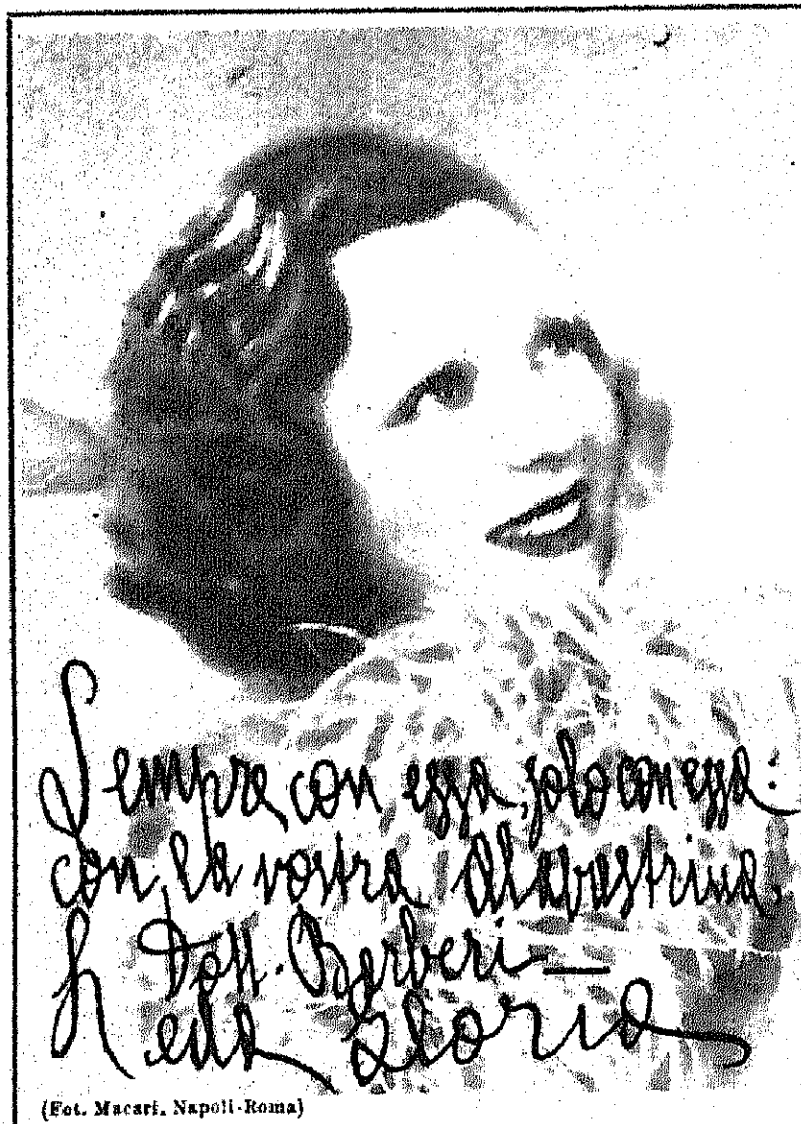 Sempre con essa, solo con essa:
con la vostra Alabastrina.
Dott. Barberi —
Leda Gloria
(Fot. Macari, Napoli-Roma)